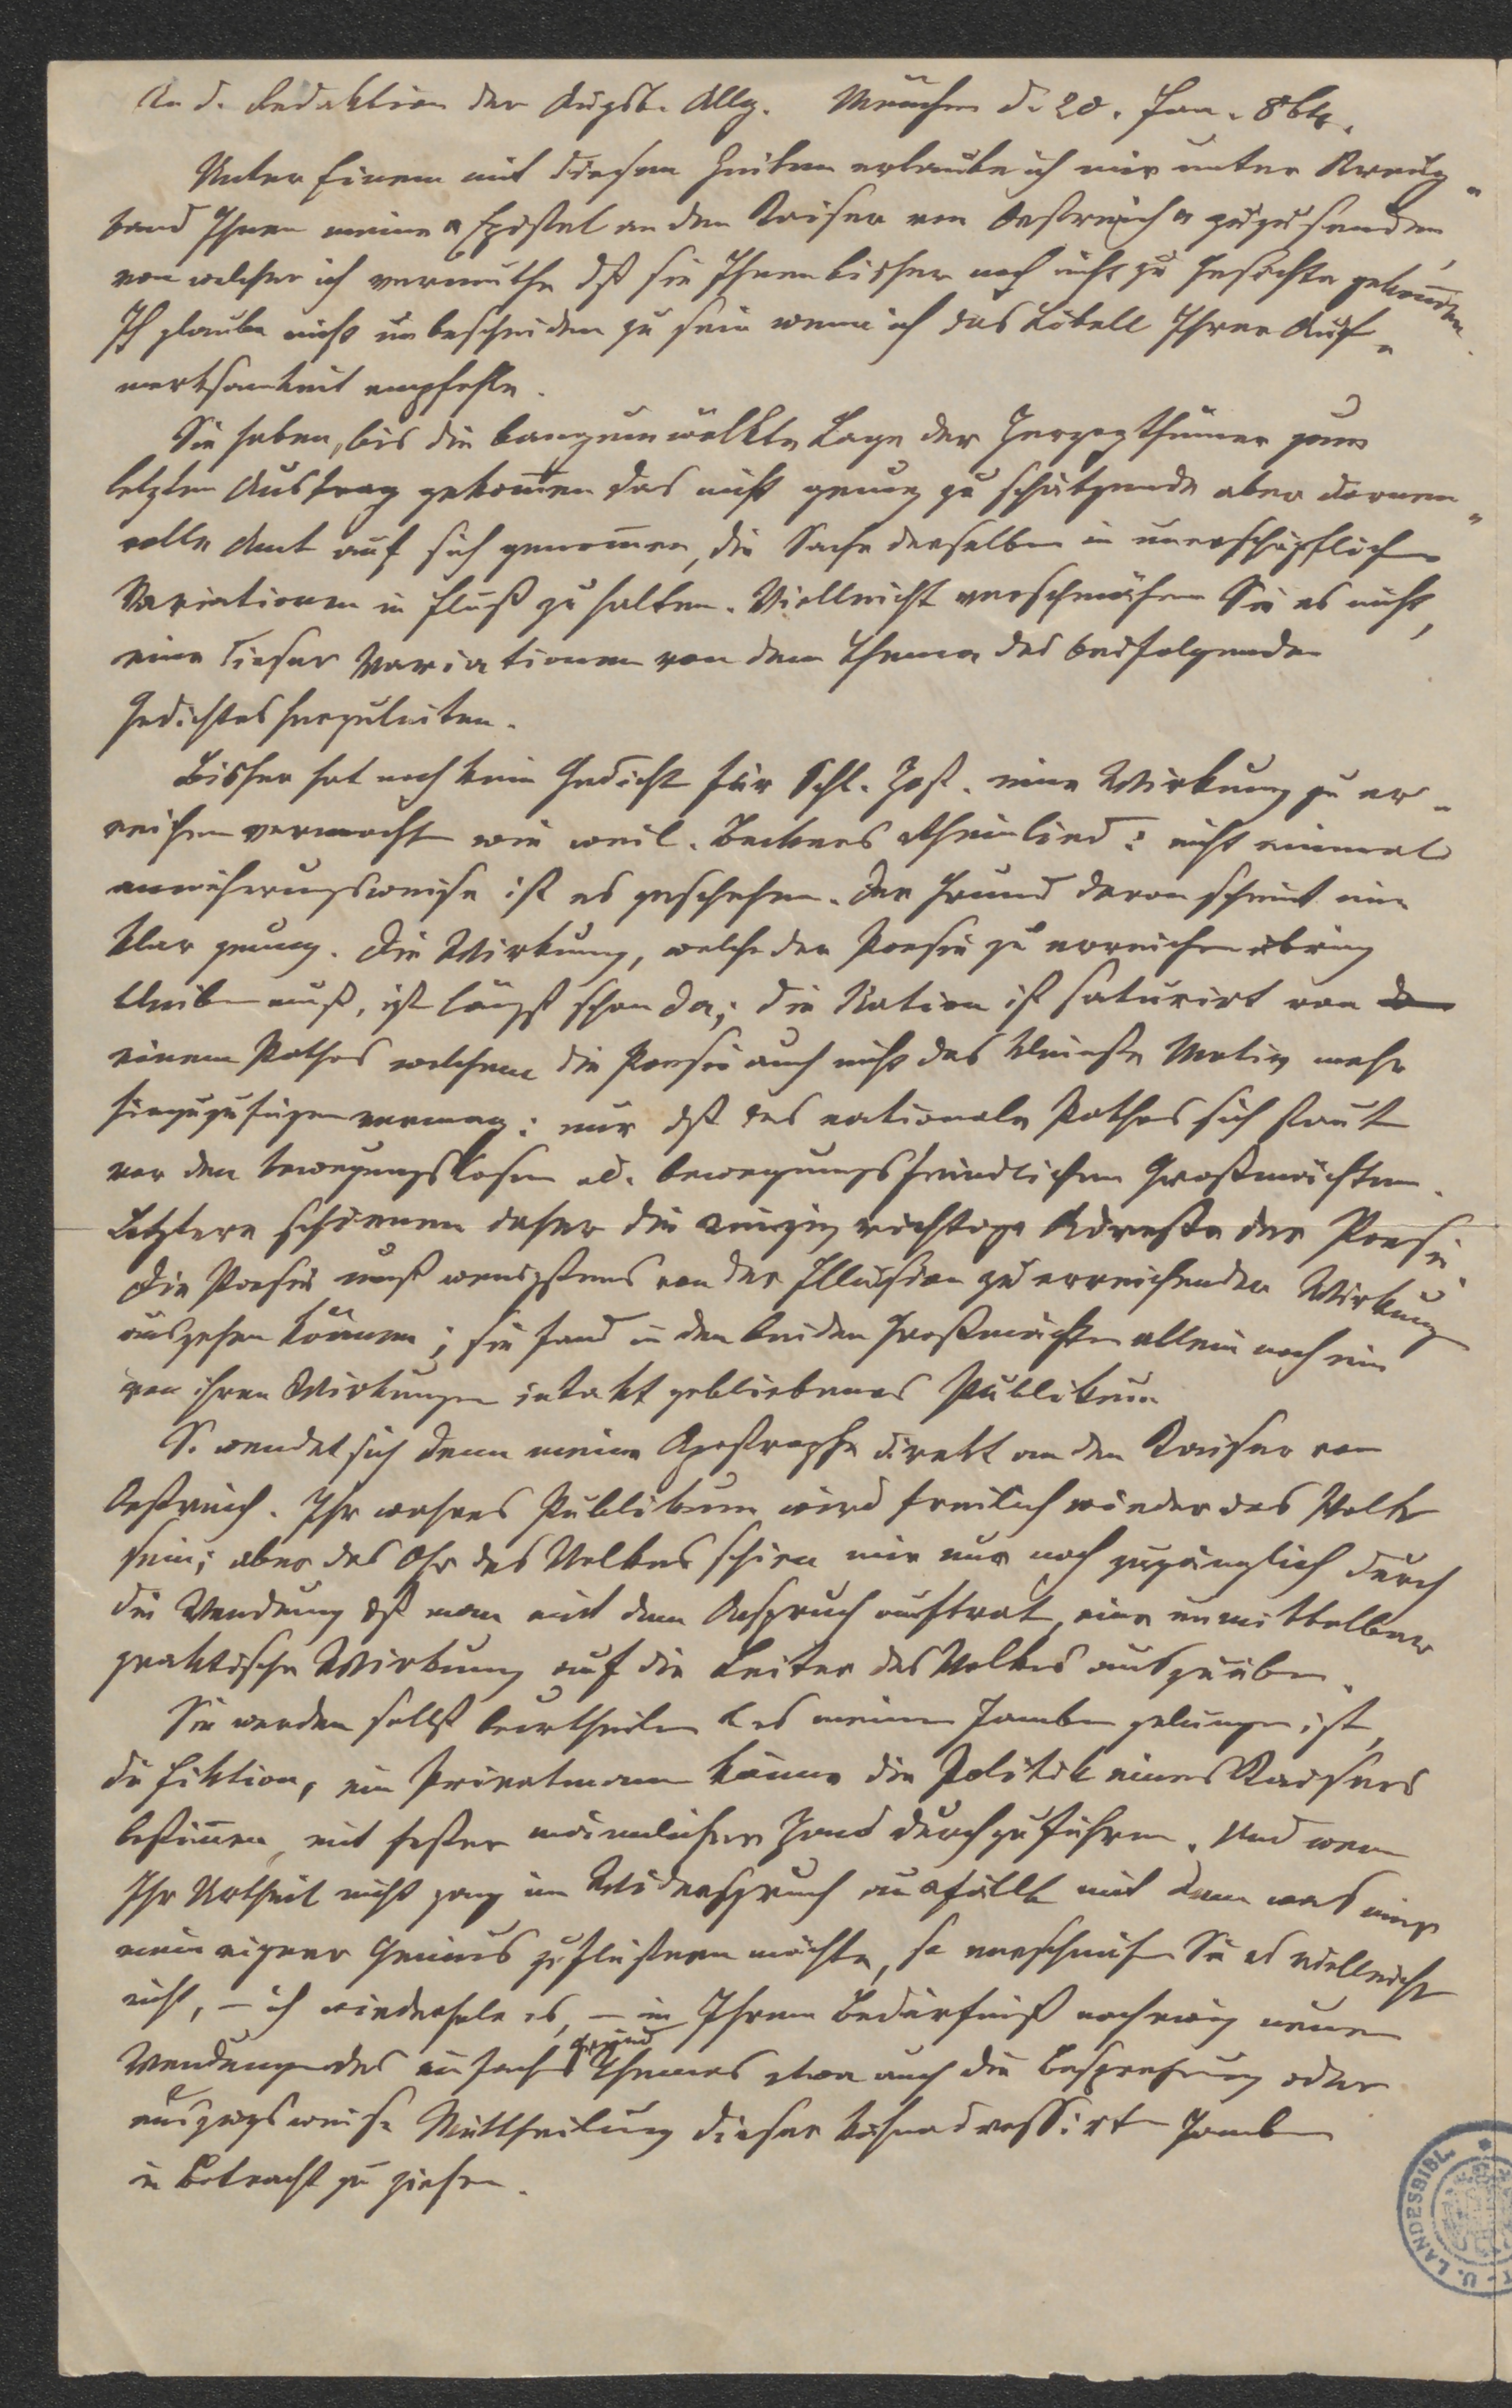 An d. Redaktion der Augsb. Allg. München d. 20. Jan. 864.
Unter Einem mit diesen Zeilen erlaube ich mir unter Kreuz-
band Ihnen meine „Epistel an den Kaiser von Oestreich“ zuzusenden,
von welcher ich vermuthe dß sie Ihnen bisher noch nicht zu Gesichte gekommen.
Ich glaube nicht unbescheiden zu sein wenn ich das Libell Ihrer Auf-
merksamkeit empfehle.
Sie haben, bis die bangumwölkte Lage der Herzogthümer zum
letzten Austrag gekommen das nicht genug zu schätzende aber dornen-
volle Amt auf sich genommen, die Sache derselben in unerschöpflichen
Variationen in Fluß zu halten. Vielleicht verschmähen Sie es nicht,
eine dieser Variationen von dem Thema des beifolgenden
Gedichtes herzuleiten.
Bisher hat noch kein Gedicht für Schl. Holst. eine Wirkung zu er-
reichen vermocht wie weil. Beckers Rheinlied: nicht einmal
annäherungsweise ist es geschehen. Der Grund davon scheint mir
klar genug. Die Wirkung, welche der Poesie zu erreichen übrig
bleiben muß, ist längst schon da; die Nation ist saturirt von
einem Pathos welchem die Poesie auch nicht das kleinste Motiv mehr
hinzuzufügen vermag: nur dß das nationale Pathos sich staut
vor den bewegungslosen od. bewegungsfeindlichen Großmächten.
Letztere schienen daher die einzig richtige Adresse der Poesie.
Die Poesie muß wenigstens von der Illusion zu erreichender Wirkung
ausgehen können; sie fand in den beiden Großmächten allein noch ein
von ihren Wirkungen intakt gebliebenes Publikum.
So wendet sich denn meine Apostrophe direkt an den Kaiser von
Oestreich. Ihr wahres Publikum wird freilich wieder das Volk
sein; aber das Ohr des Volkes schien mir nur noch zugänglich durch
die Wendung dß man mit dem Anspruch auftrat, eine unmittelbar
praktische Wirkung auf die Leiter des Volkes auszuüben.
Sie werden selbst beurtheilen ob es meinen Jamben gelungen ist,
die Fiktion, ein Privatmann könne die Politik eines Kaisers
bestimmen, mit fester männlicher Hand durchzuführen. Und wenn
Ihr Urtheil nicht ganz im Widerspruch ausfällt mit dem was mir
mein eigener Genius zuflüstern möchte, so verschmähen Sie es vielleicht
nicht, – ich wiederhole es, – in Ihrem Bedürfniß nach ewig neuen
Wendungen des einfachen Themas etwa auch die Besprechung oder
auszugsweise Mittheilung dieser kühnadressirten Jamben
in Betracht zu ziehen.
U. LANDESBIBL.